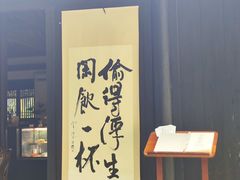 偷得浮生
闲飲一杯